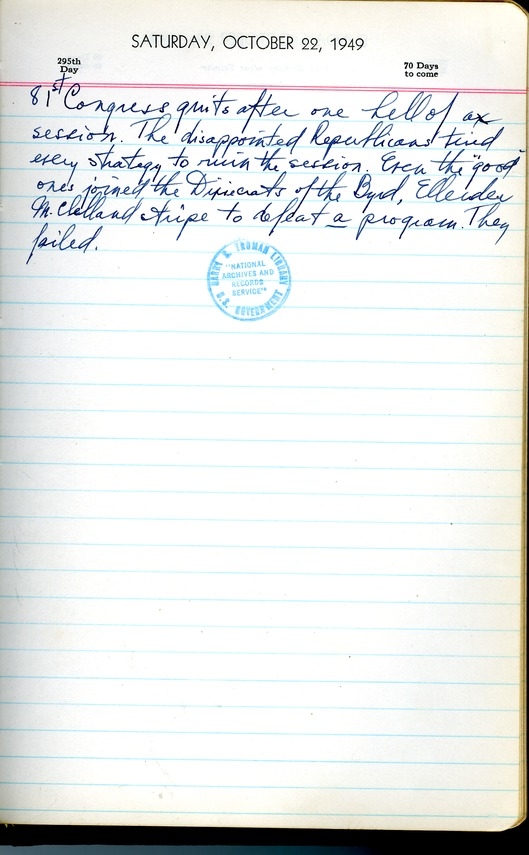 SATURDAY, OCTOBER 22, 1949
295th
Day
70 Days
to come
81st Congress quits after one hell of a
session. The disappointed Republicans tried
every strategy to ruin the session. Even the "good"
ones joined the Dixiecrats of the Byrd, Ellender
McClelland stripe to defeat a program. They
failed.
HARRY S. TRUMAN LIBRARY
"NATIONAL
ARCHIVES AND
RECORDS
SERVICE"
U.S. GOVERNMENT